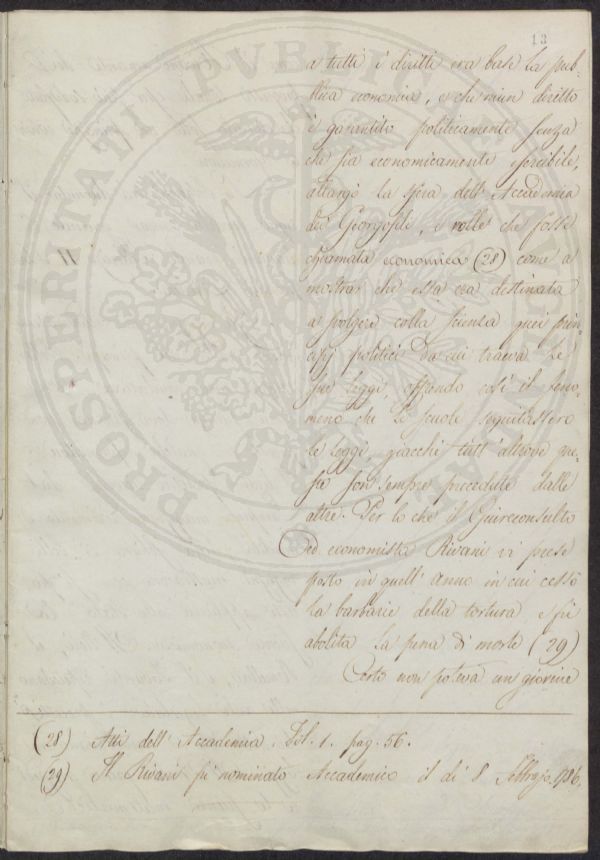 13
a tutti i diritti era base la pub-
blica economia, e che niun diritto
è garantito politicamente senza
che sia economicamente esercibile,
allargò la sfera dell'Accademia
dei Georgofili, e volle che fosse
chiamata economica (28) come a
mostrar che essa era destinata
a svolgere colla scienza quei prin-
cipj politici da cui traeva le
sue leggi, offrendo così il feno-
meno che le scuole seguitassero
le leggi, giacchè tutt'altrove que-
ste son sempre precedute dalle
altre. Per lo che il Giureconsulto
ed economista Rivani vi prese
posto in quell'anno in cui cessò
la barbarie della tortura e fù
abolita la pena di morte (29)
Certo non poteva un giovine
(28) Atti dell'Accademia. Vol. 1. pag. 56.
(29) Il Rivani fù nominato Accademico il dì 8 Febbrajo 1786.
PROSPERITATI PVBLICAE AVGENDAE